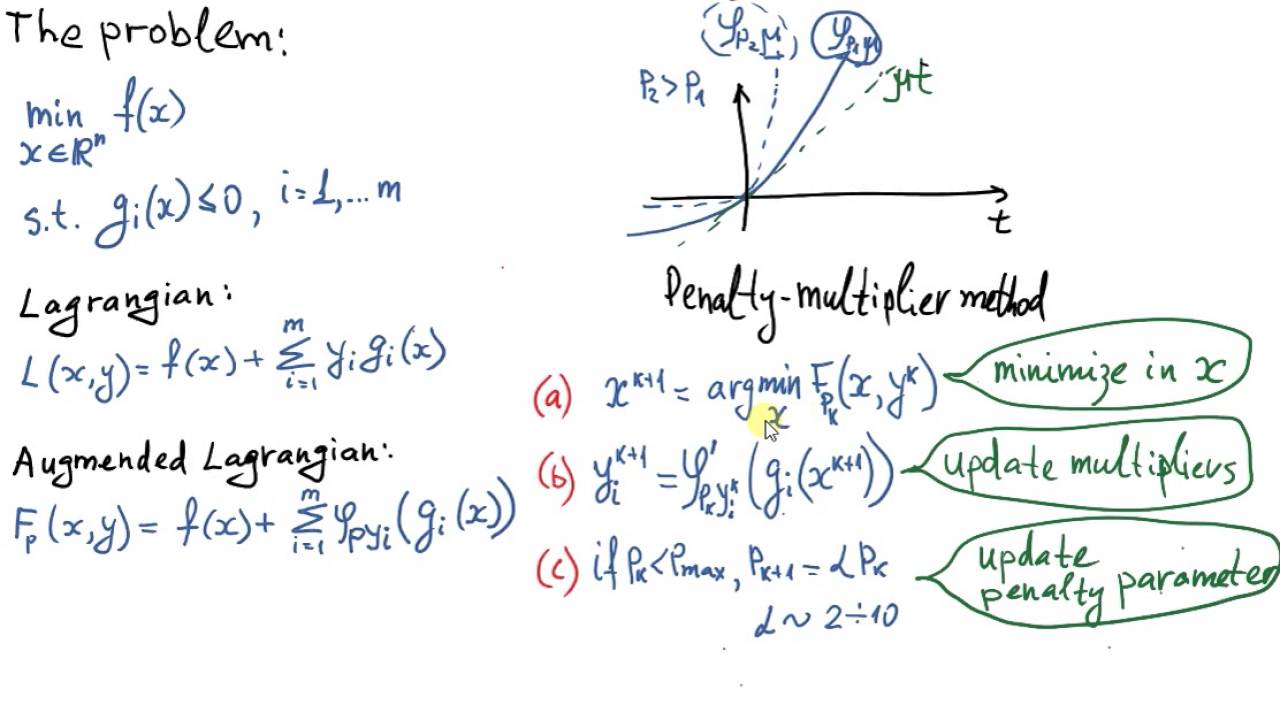 The problem:
min f(x)
x∈ℝⁿ
s.t. gᵢ(x) ≤ 0, i=1,...m
Lagrangian:
L(x,y) = f(x) + ∑ᵢ₌₁ᵐ yᵢgᵢ(x)
Augmented Lagrangian:
Fₚ(x,y) = f(x) + ∑ᵢ₌₁ᵐ φ_{pyᵢ}(gᵢ(x))
φ_{p₂μ} φ_{p₁μ}
p₂ > p₁
μt
t
Penalty-multiplier method
(a) x^{k+1} = argmin_x F_{p_k}(x, y^k)
minimize in x
(b) yᵢ^{k+1} = φ'_{p_k yᵢ^k}(gᵢ(x^{k+1}))
update multipliers
(c) if p_k < p_max, p_{k+1} = αp_k
α ~ 2÷10
update
penalty parameter